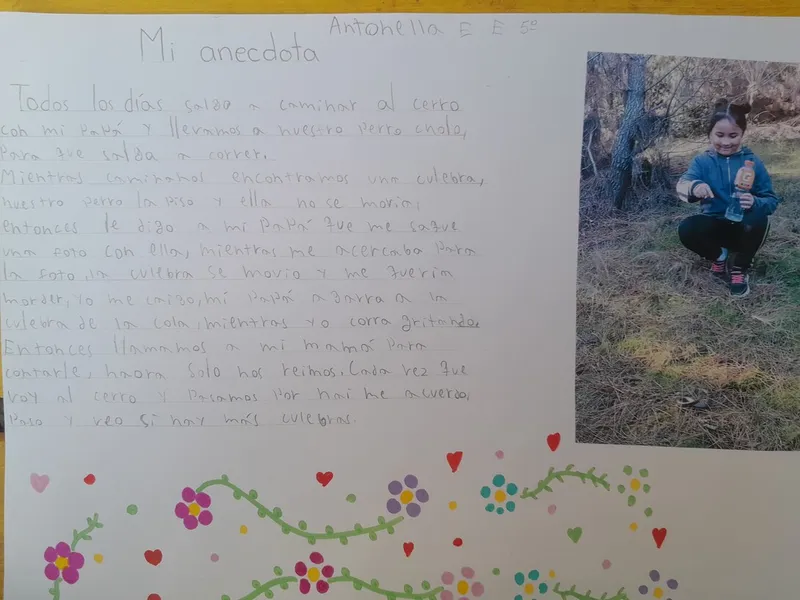 Antonella E E 5º
Mi anecdota
Todos los días salgo a caminar al cerro
con mi papá y llevamos a nuestro perro cholo,
para que salga a correr.
Mientras caminamos encontramos una culebra,
nuestro perro la piso y ella no se movia,
entonces le digo a mi papá que me saque
una foto con ella, mientras me acercaba para
la foto, la culebra se movio y me queria
morder, yo me caigo, mi papá agarra a la
culebra de la cola, mientras yo corra gritando.
Entonces llamamos a mi mamá para
contarle, haora solo nos reimos. Cada vez que
voy al cerro y pasamos por hai me acuerdo,
paso y veo si hay más culebras.